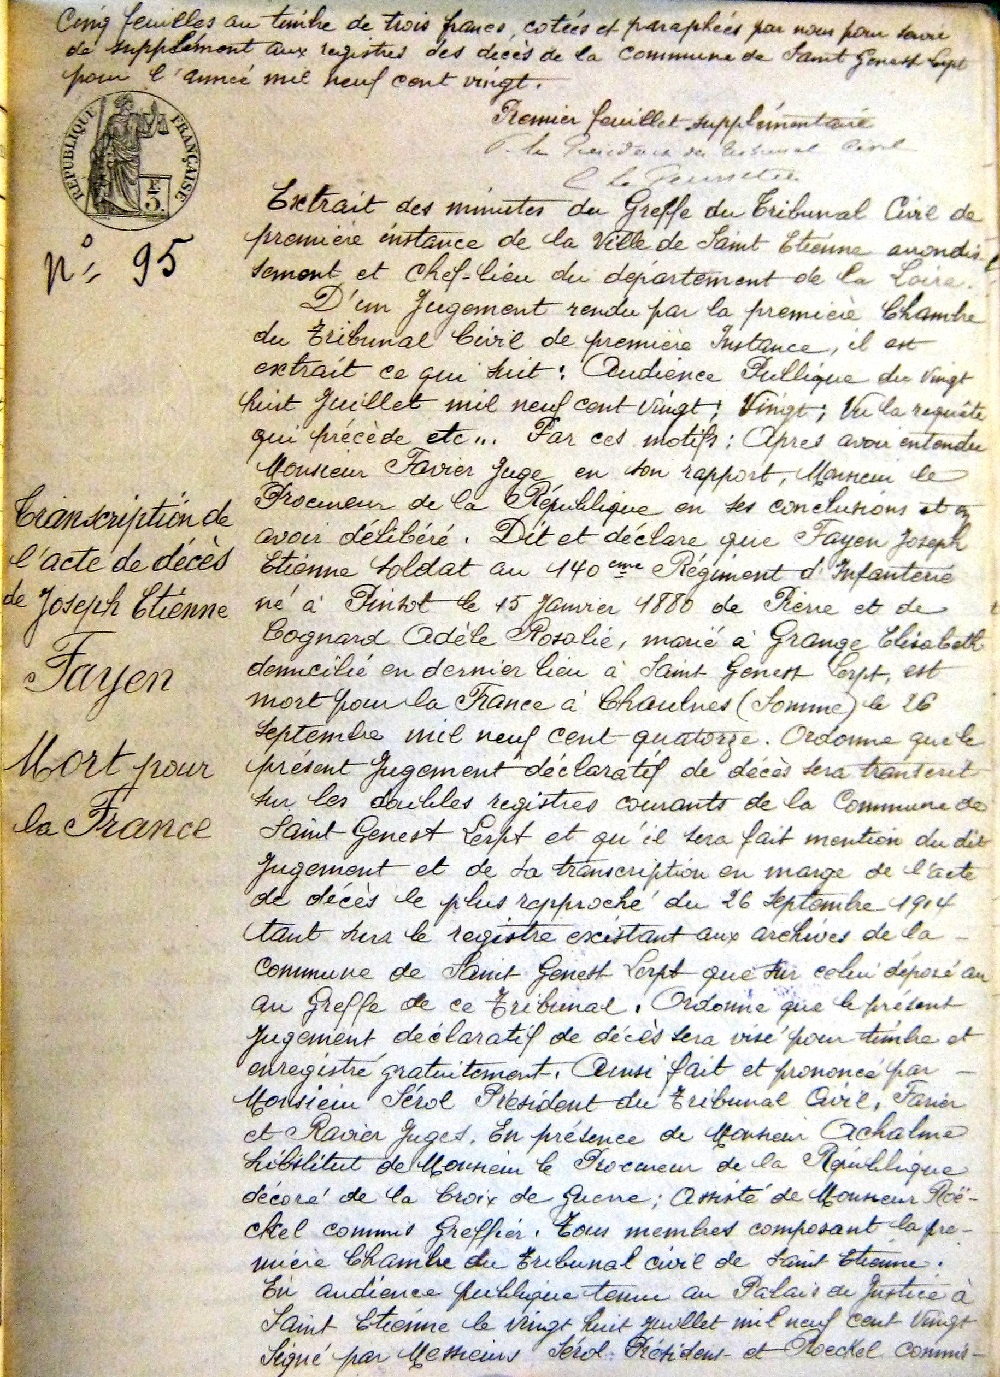 Cinq feuilles au timbre de trois francs, cotées et paraphées par nous pour servir
de supplément aux registres des décès de la commune de Saint Genest Lerpt
pour l'année mil neuf cent vingt.
Premier feuillet supplémentaire
P. le Président du Tribunal Civil
RÉPUBLIQUE FRANÇAISE
F.
3.
N° 95
Extrait des minutes du Greffe du Tribunal Civil de
première instance de la Ville de Saint Etienne arrondis-
sement et chef-lieu du département de la Loire.
D'un Jugement rendu par la première Chambre
du Tribunal Civil de première Instance, il est
extrait ce qui suit : Audience Publique du vingt
huit Juillet mil neuf cent vingt ; Vingt ; Vu la requête
qui précède etc... Par ces motifs : Après avoir entendu
Monsieur Favier Juge en son rapport, Monsieur le
Procureur de la République en ses conclusions et en
avoir délibéré. Dit et déclare que Fayen Joseph
Etienne soldat au 140eme Régiment d'Infanterie
né à Pinsot le 15 Janvier 1880 de Pierre et de
Cognard Adèle Rosalie, marié à Grange Elisabeth
domicilié en dernier lieu à Saint Genest Lerpt, est
mort pour la France à Chaulnes (Somme) le 26
Septembre mil neuf cent quatorze. Ordonne que le
présent Jugement déclaratif de décès sera transcrit
sur les doubles registres courants de la Commune de
Saint Genest Lerpt et qu'il sera fait mention du dit
Jugement et de sa transcription en marge de l'acte
de décès le plus rapproché du 26 Septembre 1914
tant sur le registre existant aux archives de la -
Commune de Saint Genest Lerpt que sur celui déposé au
au Greffe de ce Tribunal. Ordonne que le présent
Jugement déclaratif de décès sera visé pour timbre et
enregistré gratuitement. Ainsi fait et prononcé par -
Monsieur Sérol Président du Tribunal Civil, Favier
et Ravier Juges. En présence de Monsieur Achalme
substitut de Monsieur le Procureur de la République
décoré de la Croix de Guerre ; Assisté de Monsieur Roë-
ckel commis Greffier. Tous membres composant la pre-
mière Chambre du Tribunal civil de Saint Etienne.
En audience publique tenue au Palais de Justice à
Saint Etienne le vingt huit Juillet mil neuf cent Vingt
Signé par Messieurs Sérol Président et Roeckel commis-
Transcription de
l'acte de décès
de Joseph Etienne
Fayen
Mort pour
la France